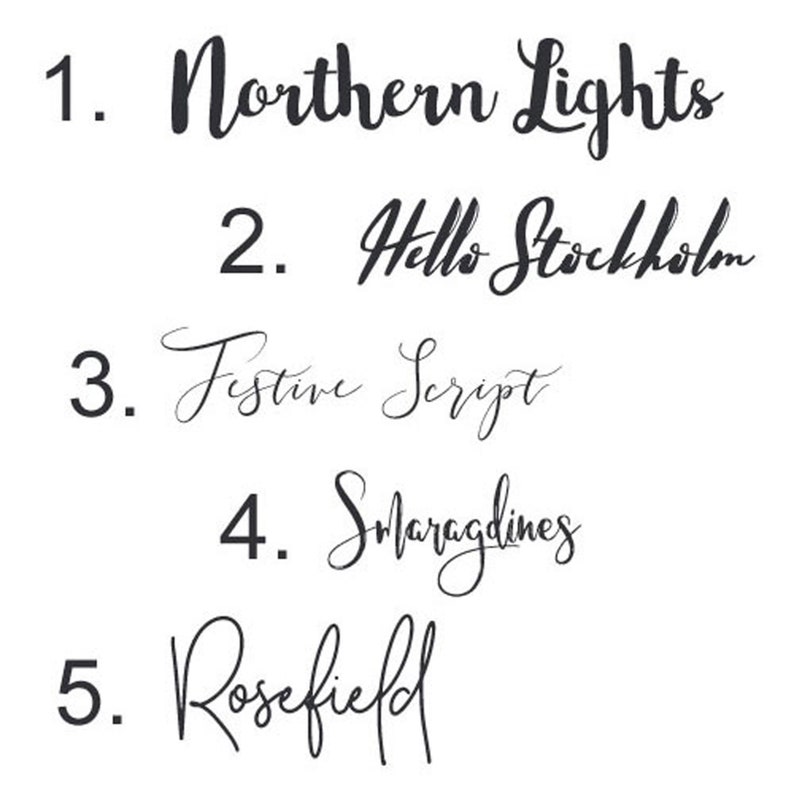 1. Northern Lights
2. Hello Stockholm
3. Festive Script
4. Smaragdines
5. Rosefield